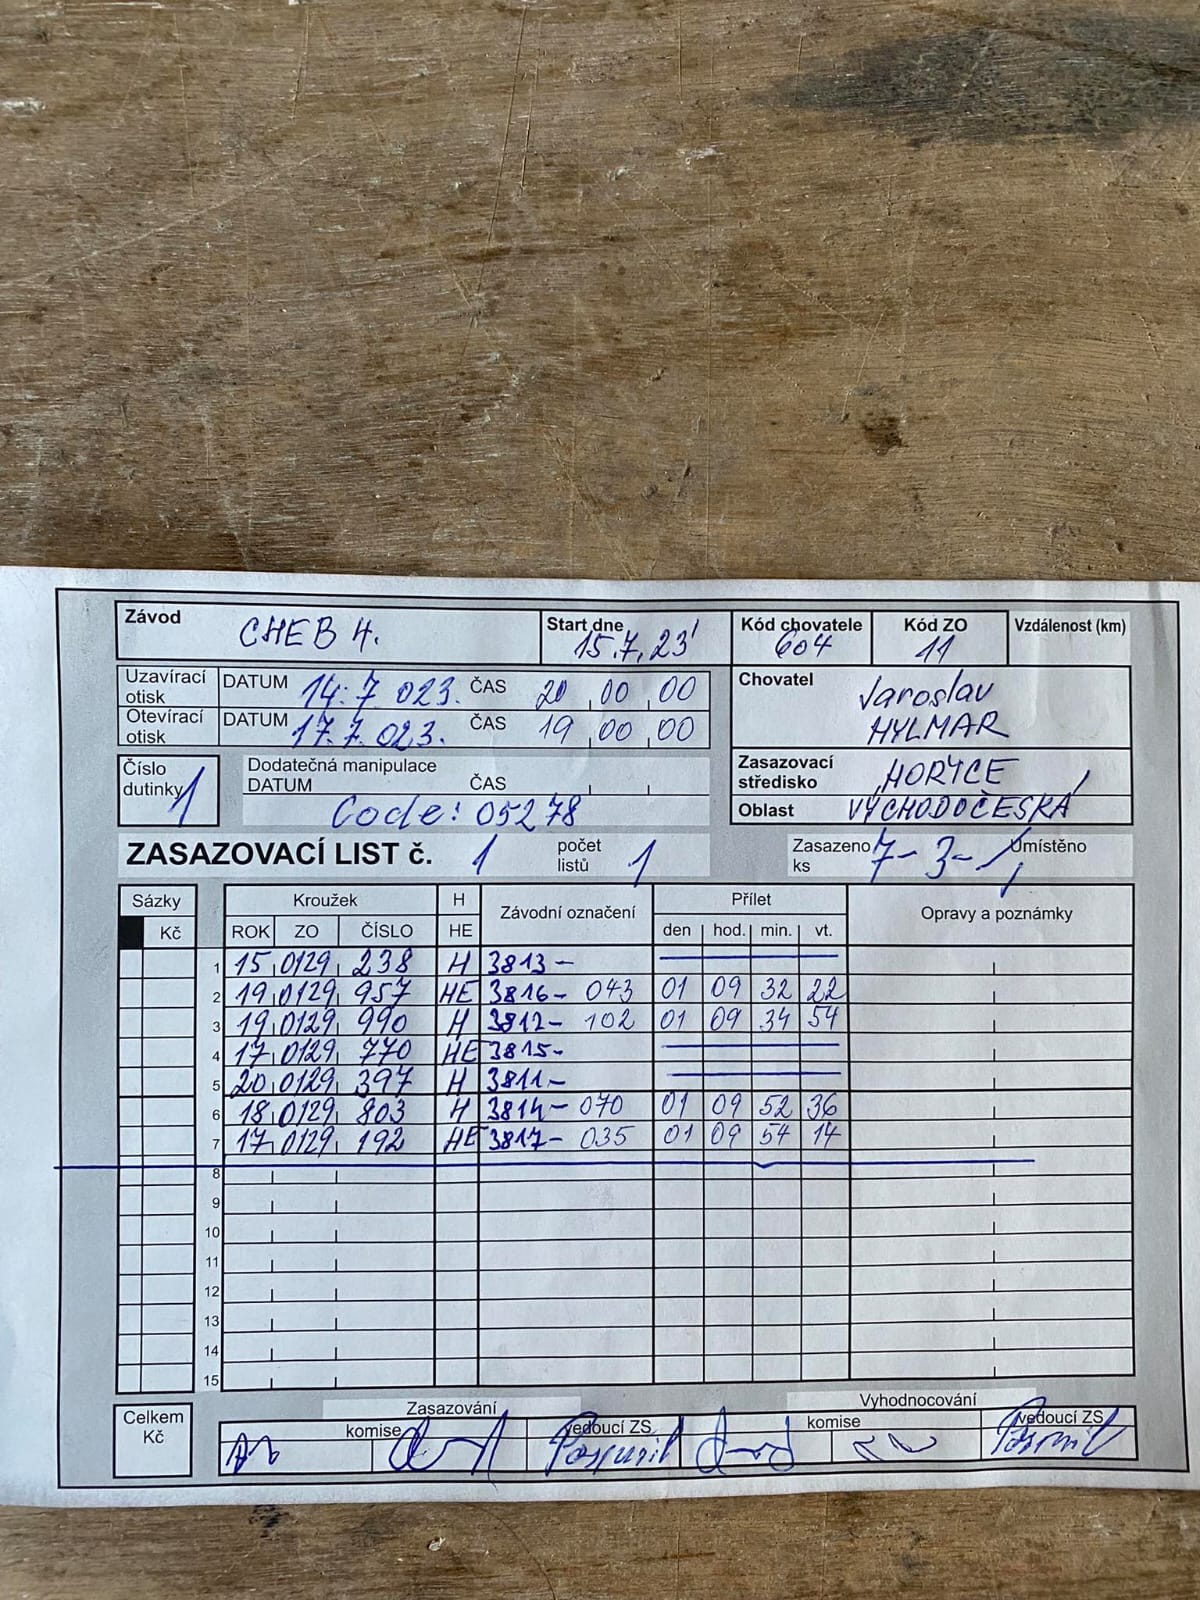 Závod CHEB 4. Start dne 15.7.23' Kód chovatele 604 Kód ZO 11 Vzdálenost (km)
Uzavírací otisk DATUM 14.7 023. ČAS 20 00 00
Otevírací otisk DATUM 17.7.023. ČAS 19 00 00
Chovatel Jaroslav HYLMAR
Číslo dutinky 1
Dodatečná manipulace
DATUM ČAS
Code: 05278
Zasazovací středisko HORYCE
Oblast VÝCHODOČESKÁ
ZASAZOVACÍ LIST č. 1 počet listů 1 Zasazeno ks 7-3- Umístěno
Sázky Kroužek H Závodní označení Přílet Opravy a poznámky
Kč ROK ZO ČÍSLO HE den hod. min. vt.
1 15 0129 238 H 3813-
2 19 0129 957 HE 3816- 043 01 09 32 22
3 19 0129 990 H 3812- 102 01 09 34 54
4 17 0129 770 HE 3815-
5 20 0129 397 H 3811-
6 18 0129 803 H 3814- 070 01 09 52 36
7 17 0129 192 HE 3817- 035 01 09 54 14
8
9
10
11
12
13
14
15
Celkem Kč
Zasazování Vyhodnocování
komise vedoucí ZS komise vedoucí ZS